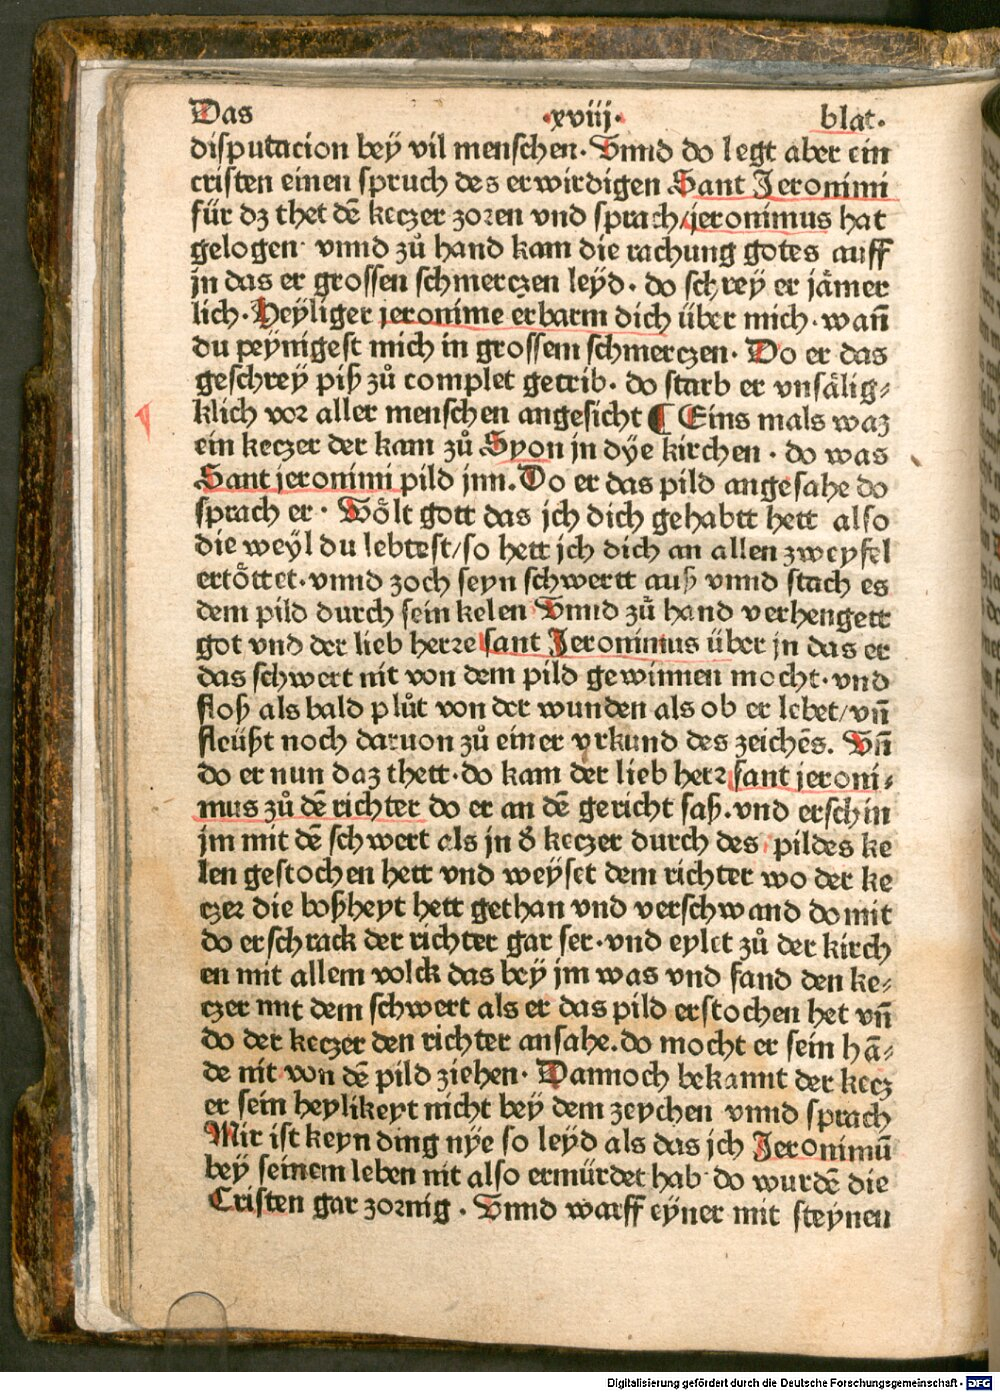 Das ·xviij· blat·
disputacion bey vil menschen. Vnnd do legt aber ein
cristen einen spruch des erwirdigen Sant Jeronimi
für dz thet dē keczer zoren vnd sprach/jeronimus hat
gelogen· vnnd zů hand kam die rachung gotes auff
jn das er grossen schmerczen leyd. do schrey er jåmer
lich. Heyliger jeronime erbarm dich über mich. wañ
du peynigest mich in grossem schmerczen. Do er das
geschrey piß zů complet getrib. do starb er vnsålig⸗
klich vor aller menschen angesicht ¶ Eins mals waz
ein keczer der kam zů Syon jn dÿe kirchen. do was
Sant jeronimi pild jnn. Do er das pild angesahe do
sprach er. Wôlt gott das jch dich gehabtt hett also
die weyl du lebtest/so hett jch dich an allen zweyfel
ertôttet. vnnd zoch seyn schwertt auß vnnd stach es
dem pild durch sein kelen Vnnd zů hand verhengett
got vnd der lieb herre sant Jeronimus über jn das er
das schwert nit von dem pild gewinnen mocht. vnd
floß als bald plůt von der wunden als ob er lebet/vñ
fleüßt noch daruon zů einer vrkund des zeichēs. Vñ
do er nun daz thett. do kam der lieb herr sant jeroni⸗
mus zů dē richter do er an dē gericht saß. vnd erschin
jm mit dē schwert als jn d̕ keczer durch des pildes ke
len gestochen hett vnd weyset dem richter wo der ke
czer die boßheyt hett gethan vnd verschwand domit
do erschrack der richter gar ser. vnd eylet zů der kirch
en mit allem volck das bey jm was vnd fand den ke⸗
czer mit dem schwert als er das pild erstochen het vñ
do der keczer den richter ansahe. do mocht er sein hā⸗
de nit von dē pild ziehen. Dannoch bekannt der kecz
er sein heylikeyt nicht bey dem zeychen vnnd sprach
Mir ist keyn ding nÿe so leyd als das jch Jeronimū
bey seinem leben nit also ermürdet hab· do wurdē die
Cristen gar zornig. Vnnd warff eyner mit steynen
Digitalisierung gefördert durch die Deutsche Forschungsgemeinschaft - DFG